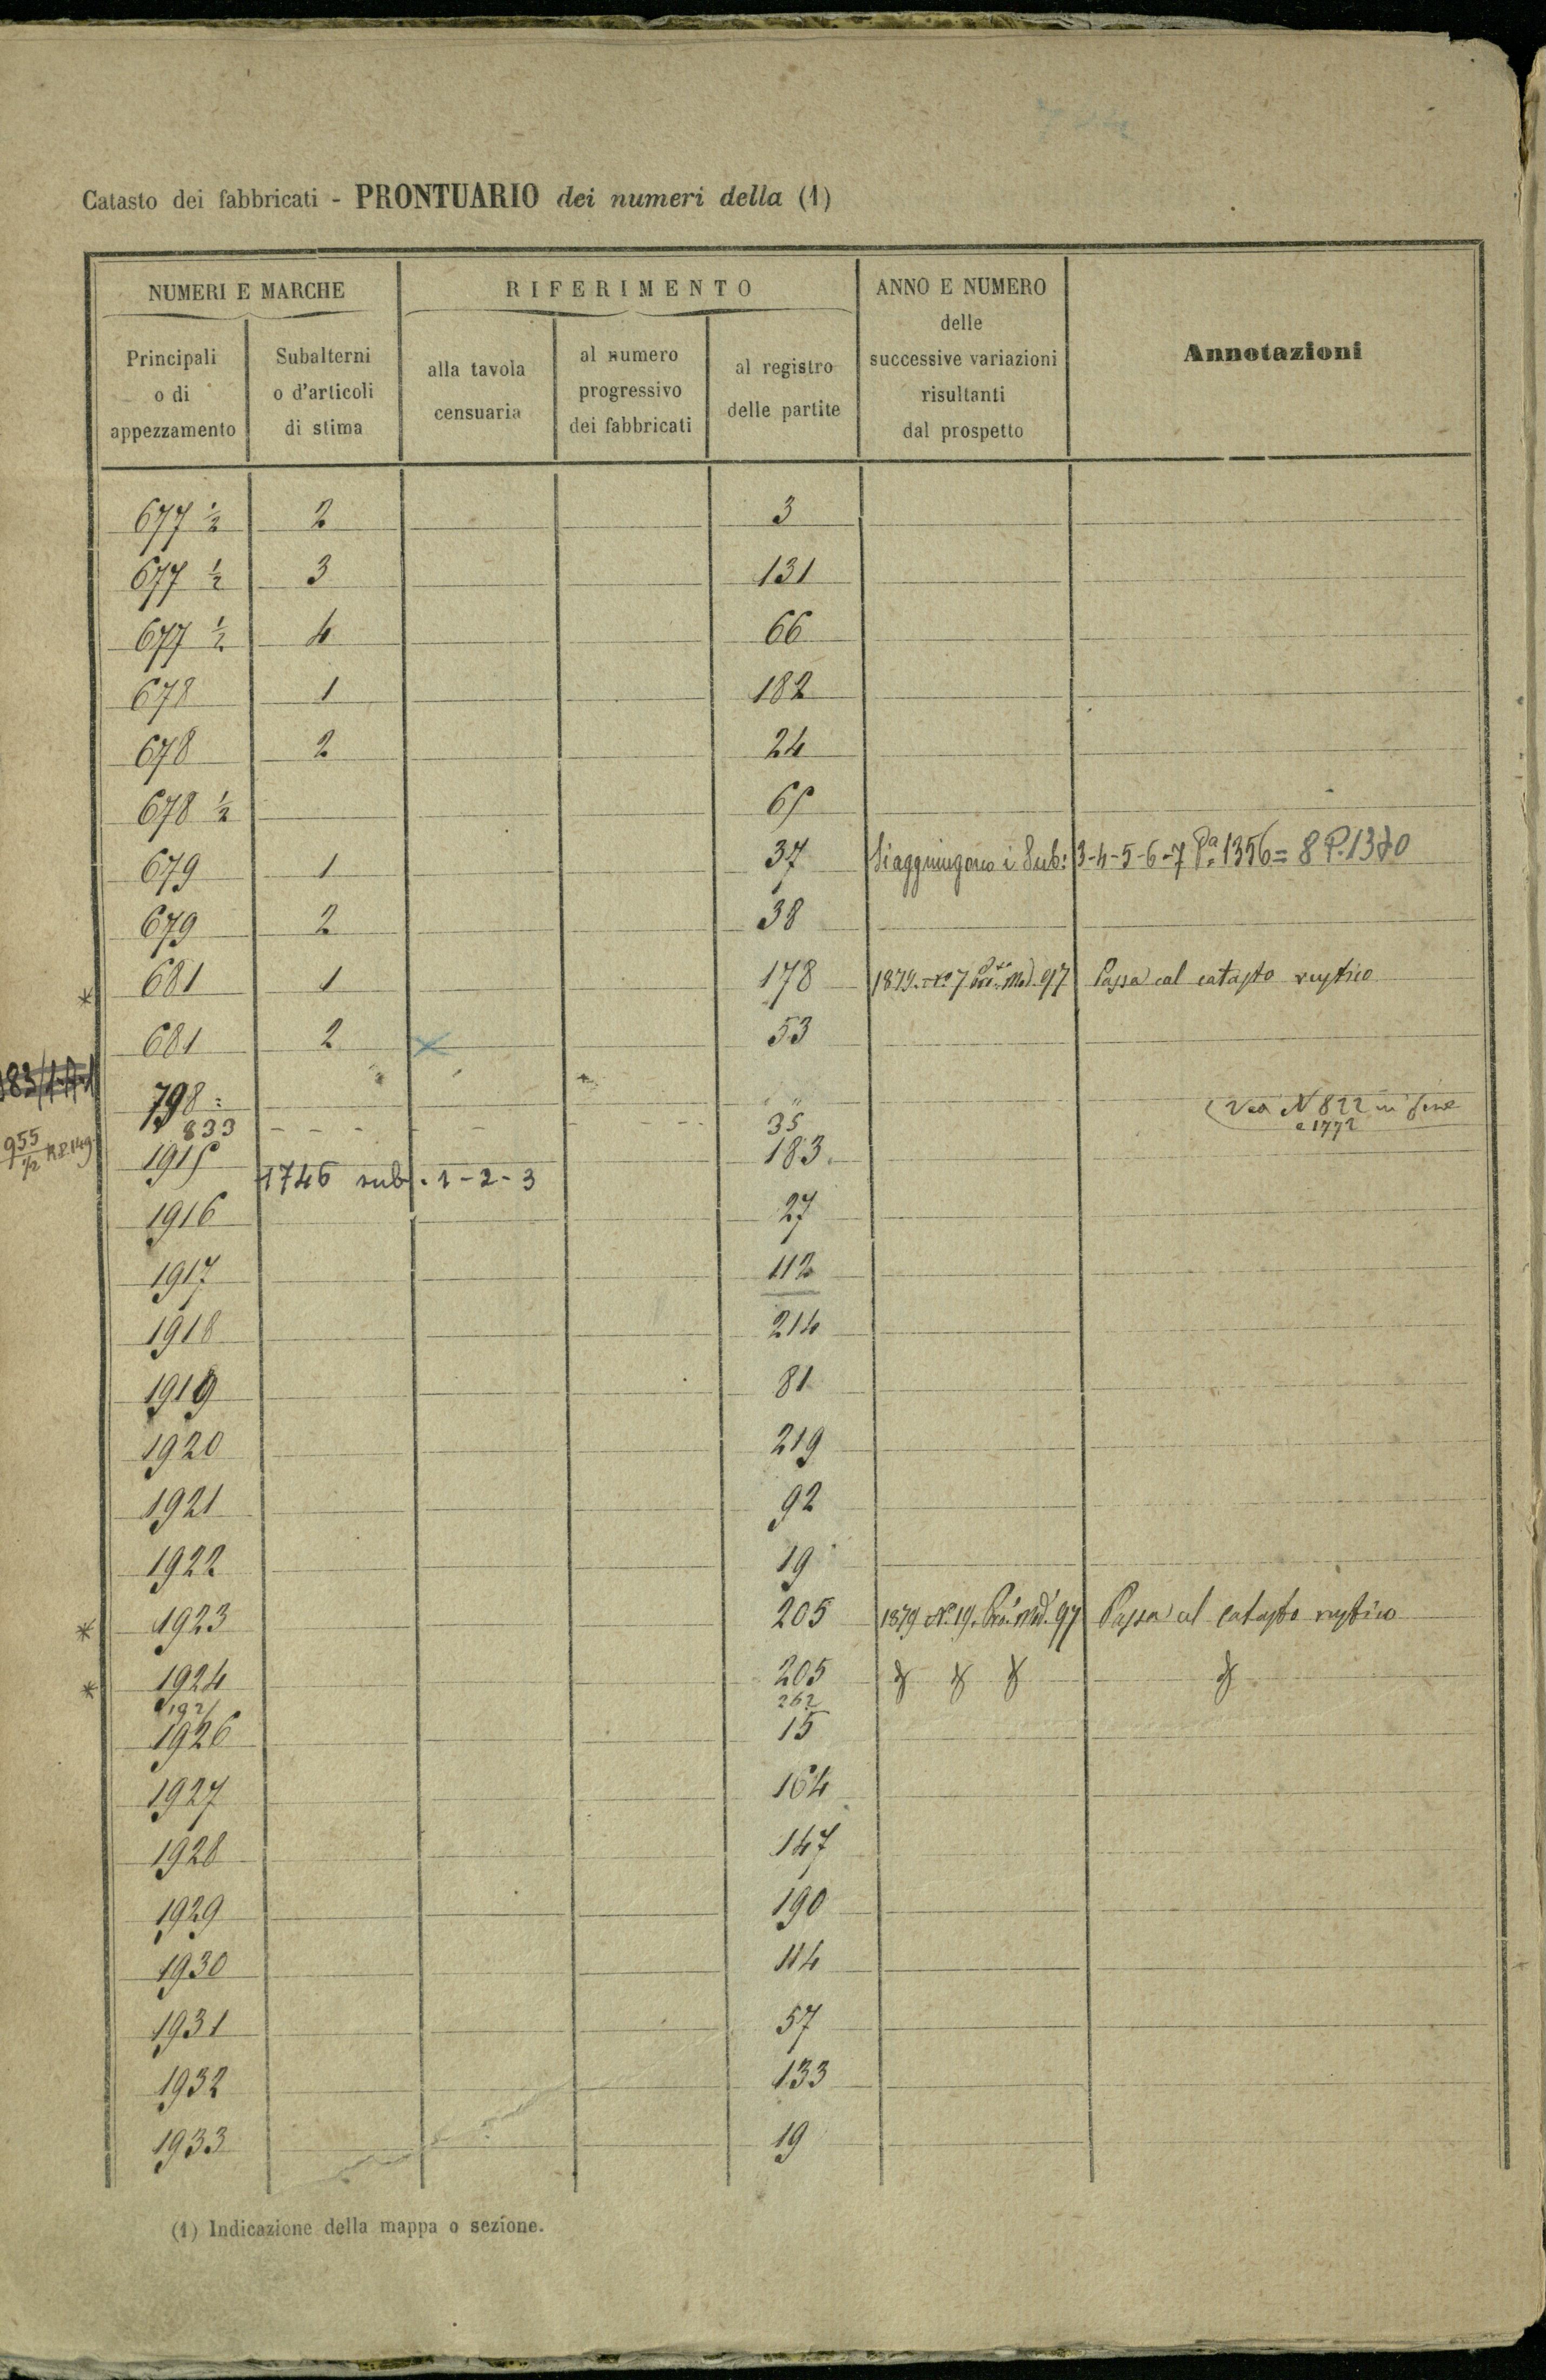 Catasto dei fabbricati - PRONTUARIO dei numeri della (1)
NUMERI E MARCHE
RIFERIMENTO
ANNO E NUMERO
delle
successive variazioni
risultanti
dal prospetto
Annotazioni
Principali
o di
appezzamento
Subalterni
o d'articoli
di stima
alla tavola
censuaria
al numero
progressivo
dei fabbricati
al registro
delle partite
677 ½ 2 3
677 ½ 3 131
677 ½ 4 66
678 1 182
678 2 24
678 ½ 65
679 1 37 Si aggiungono i Sub: 3-4-5-6-7 Pa. 1356 = 8 P. 1370
679 2 38
* 681 1 178 1879. N° 7 Mod. 97 Passa al catasto rustico
681 2 x 53
798 =
(Vedi N 822 in fine
e 1772
833 - - - - - - - - - 35
955
½ R.P. 149
1915 183
1746 sub. 1-2-3
1916 27
1917 112
1918 214
1919 81
1920 219
1921 92
1922 19
* 1923 205 1879 N° 19. Mod. 97 Passa al catasto rustico
* 1924 205
262
1926 15
1927 164
1928 147
1929 190
1930 114
1931 57
1932 133
1933 19
(1) Indicazione della mappa o sezione.